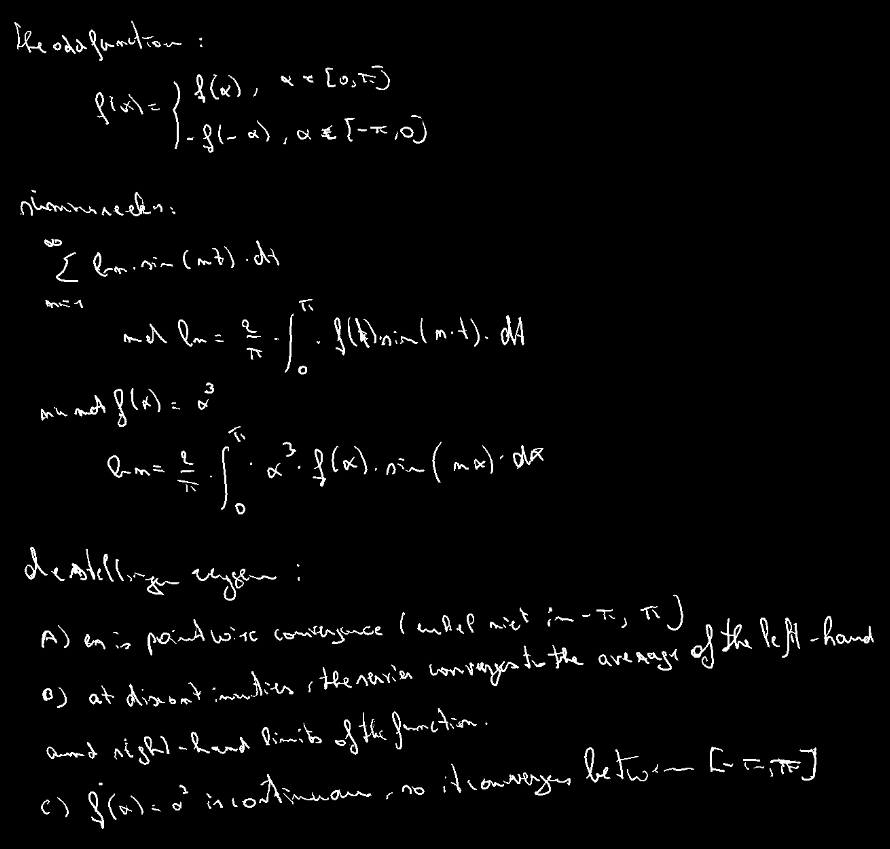 The odd function :
f(x) = { f(x), x ∈ [0, π]
-f(-x), x ∈ [-π, 0]
sinusreeks:
∞
∑ bn · sin(nt) · dt
n=1
met bn = 2/π · ∫₀^π · f(t) sin(n·t) · dt
nu met f(x) = x³
bn = 2/π · ∫₀^π · x³ · f(x) · sin(nx) · dx
de stellingen zeggen :
A) er is pointwise convergence (enkel niet in -π, π)
B) at discontinuities, the series converges to the average of the left-hand
and right-hand limits of the function.
C) f(x) = x³ is continuous, so it converges between [-π, π]